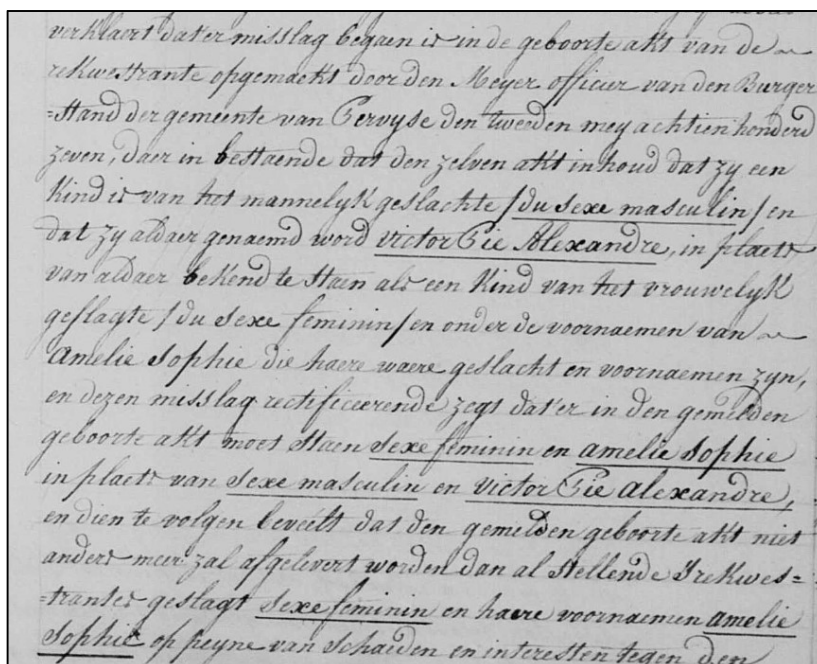 verklaert dat'er misslag begaen is in de geboorte akt van de
rekwestrante opgemaekt door den Meyer officier van den Burger
=Stand der gemeente van Pervyse den tweeden mey achtien honderd
zeven, daer in bestaende dat den zelven akt inhoud dat zy een
Kind is van het mannelyk geslachte /du sexe masculin/ en
dat zy aldaer genaemd word victor Pie Alexandre, in plaets
van aldaer bekend te staen als een Kind van het vrouwelyk
geslagte /du sexe feminin/ en onder de voornaemen van
Amelie Sophie die haere waere geslacht en voornaemen zyn,
en dezen misslag rectificeerende zegt dat'er in den gemelden
geboorte akt moet staen sexe feminin en amelie Sophie
in plaets van sexe masculin en victor Pie alexandre,
en dien te volgen beveélt dat den gemelden geboorte akt niet
anders meer zal afgelevert worden dan al stellende 'S rekwes=
=trantes geslagt sexe feminin en haere voornaemen amelie
Sophie op peyne van schaeden en interesten tegen den